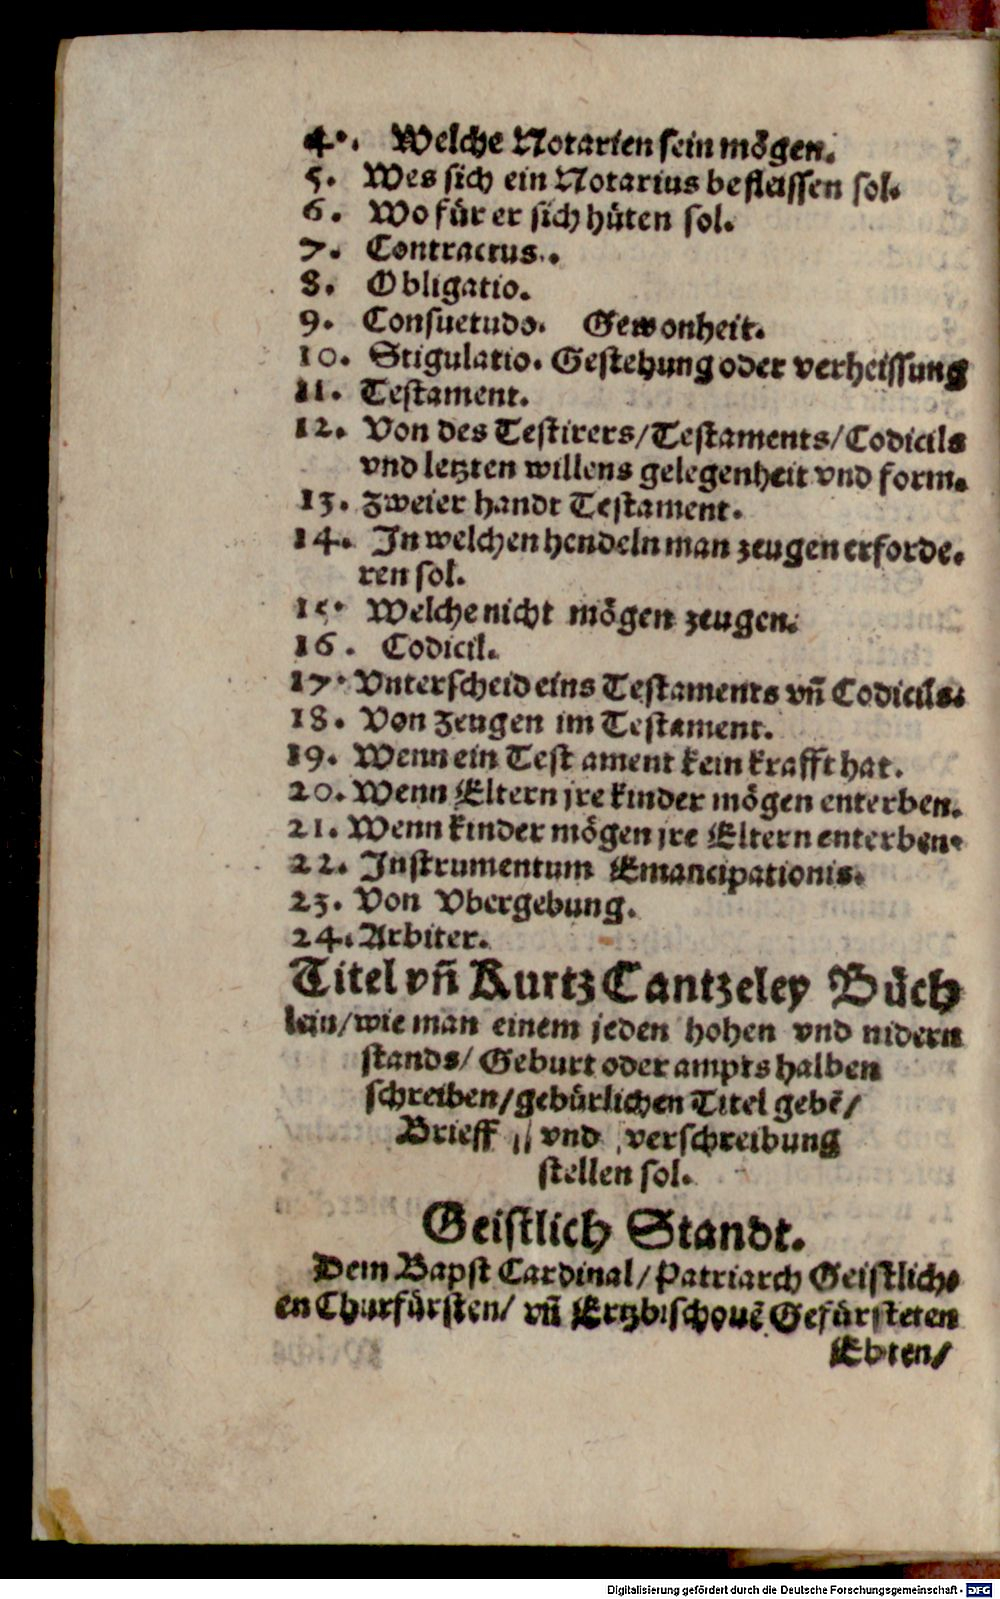 4. Welche Notarien sein mögen.
5. Wes sich ein Notarius befleissen sol.
6. Wo für er sich hüten sol.
7. Contractus.
8. Obligatio.
9. Consuetudo. Gewonheit.
10. Stigulatio. Gestehung oder verheissung
11. Testament.
12. Von des Testirers/Testaments/Codicils
vnd letzten willens gelegenheit vnd form.
13. Zweier handt Testament.
14. In welchen hendeln man zeugen erforde.
ren sol.
15. Welche nicht mögen zeugen.
16. Codicil.
17. Vnterscheid eins Testaments vñ Codicils.
18. Von Zeugen im Testament.
19. Wenn ein Testament kein krafft hat.
20. Wenn Eltern jre kinder mögen enterben.
21. Wenn kinder mögen jre Eltern enterben.
22. Instrumentum Emancipationis.
23. Von Vbergebung.
24. Arbiter.
Titel vñ Kurtz Cantzeley Büch
lein/wie man einem jeden hohen vnd nidern
stands/ Geburt oder ampts halben
schreiben/gebürlichen Titel gebẽ/
Brieff // vnd verschreibung
stellen sol.
Geistlich Standt.
Dem Bapst Cardinal/Patriarch Geistlich-
en Churfürsten/ vñ Ertzbischouẽ Gefürsteten
Ebten/
Digitalisierung gefördert durch die Deutsche Forschungsgemeinschaft - DFG